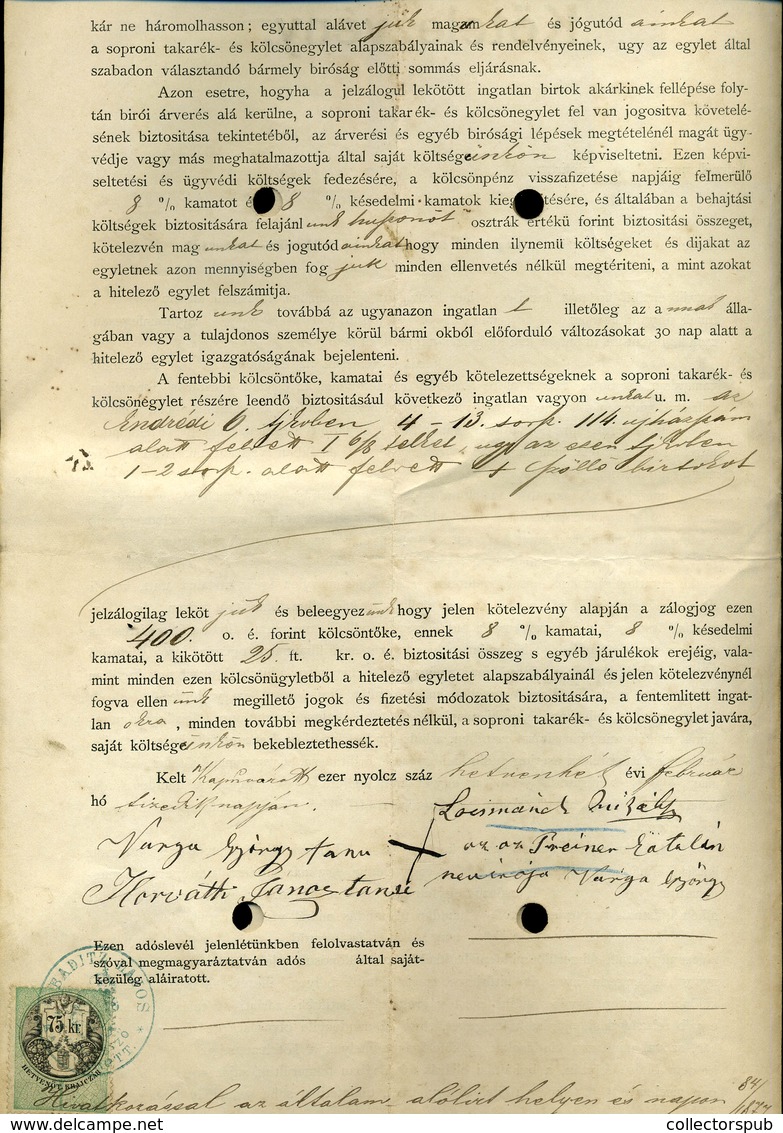 kár ne háromolhasson; egyuttal alávetjük magunkat és jógutódainkat
a soproni takarék- és kölcsönegylet alapszabályainak és rendelvényeinek, ugy az egylet által
szabadon választandó bármely biróság előtti sommás eljárásnak.
Azon esetre, hogyha a jelzálogul lekötött ingatlan birtok akárkinek fellépése foly-
tán birói árverés alá kerülne, a soproni takarék- és kölcsönegylet fel van jogositva követelé-
sének biztositása tekintetéből, az árverési és egyéb birósági lépések megtételénél magát ügy-
védje vagy más meghatalmazottja által saját költségünkön képviseltetni. Ezen képvi-
seltetési és ügyvédi költségek fedezésére, a kölcsönpénz visszafizetése napjáig felmerülő
8 % kamatot é 8 % késedelmi kamatok kieg tésére, és általában a behajtási
költségek biztositására felajánlunk huszonöt osztrák értékü forint biztositási összeget,
kötelezvén magunkat és jogutódainkat hogy minden ilynemü költségeket és dijakat az
egyletnek azon mennyiségben fogjuk minden ellenvetés nélkül megtériteni, a mint azokat
a hitelező egylet felszámitja.
Tartozunk továbbá az ugyanazon ingatlant illetőleg az annak álla-
gában vagy a tulajdonos személye körül bármi okból előforduló változásokat 30 nap alatt a
hitelező egylet igazgatóságának bejelenteni.
A fentebbi kölcsöntőke, kamatai és egyéb kötelezettségeknek a soproni takarék- és
kölcsönegylet részére leendő biztositásául következő ingatlan vagyonunkat u. m. az
Endrédi 6. tjkvben 4-13. sorp. 114. ujházszám
alatt felvett I 6/8 telket, ugy az ezen tjkvben
1-2 sorp. alatt felvett szőllő birtokot
jelzálogilag lekötjük és beleegyezünk hogy jelen kötelezvény alapján a zálogjog ezen
400 o. é. forint kölcsöntőke, ennek 8 % kamatai, 8 % késedelmi
kamatai, a kikötött 25 ft. kr. o. é. biztositási összeg s egyéb járulékok erejéig, vala-
mint minden ezen kölcsönügyletből a hitelező egyletet alapszabályainál és jelen kötelezvénynél
fogva ellenünk megillető jogok és fizetési módozatok biztositására, a fentemlitett ingat-
lanokra, minden további megkérdeztetés nélkül, a soproni takarék- és kölcsönegylet javára,
saját költségünkön bekebleztethessék.
Kelt Kapuvárott ezer nyolcz száz hetvenhét évi február
hó tizedik napján.
Locsmándi Mihály
Varga György tanu
az az Preiner Katalin
Horváth János tanu
nevirója Varga György
Ezen adóslevél jelenlétünkben felolvastatván és
szóval megmagyaráztatván adós által saját-
kezüleg aláiratott.
75 kr.
HETVENÖT KRAJCZÁR
Hivatkozással az általam alólirt helyen és napon 84/
1877
collectorspub